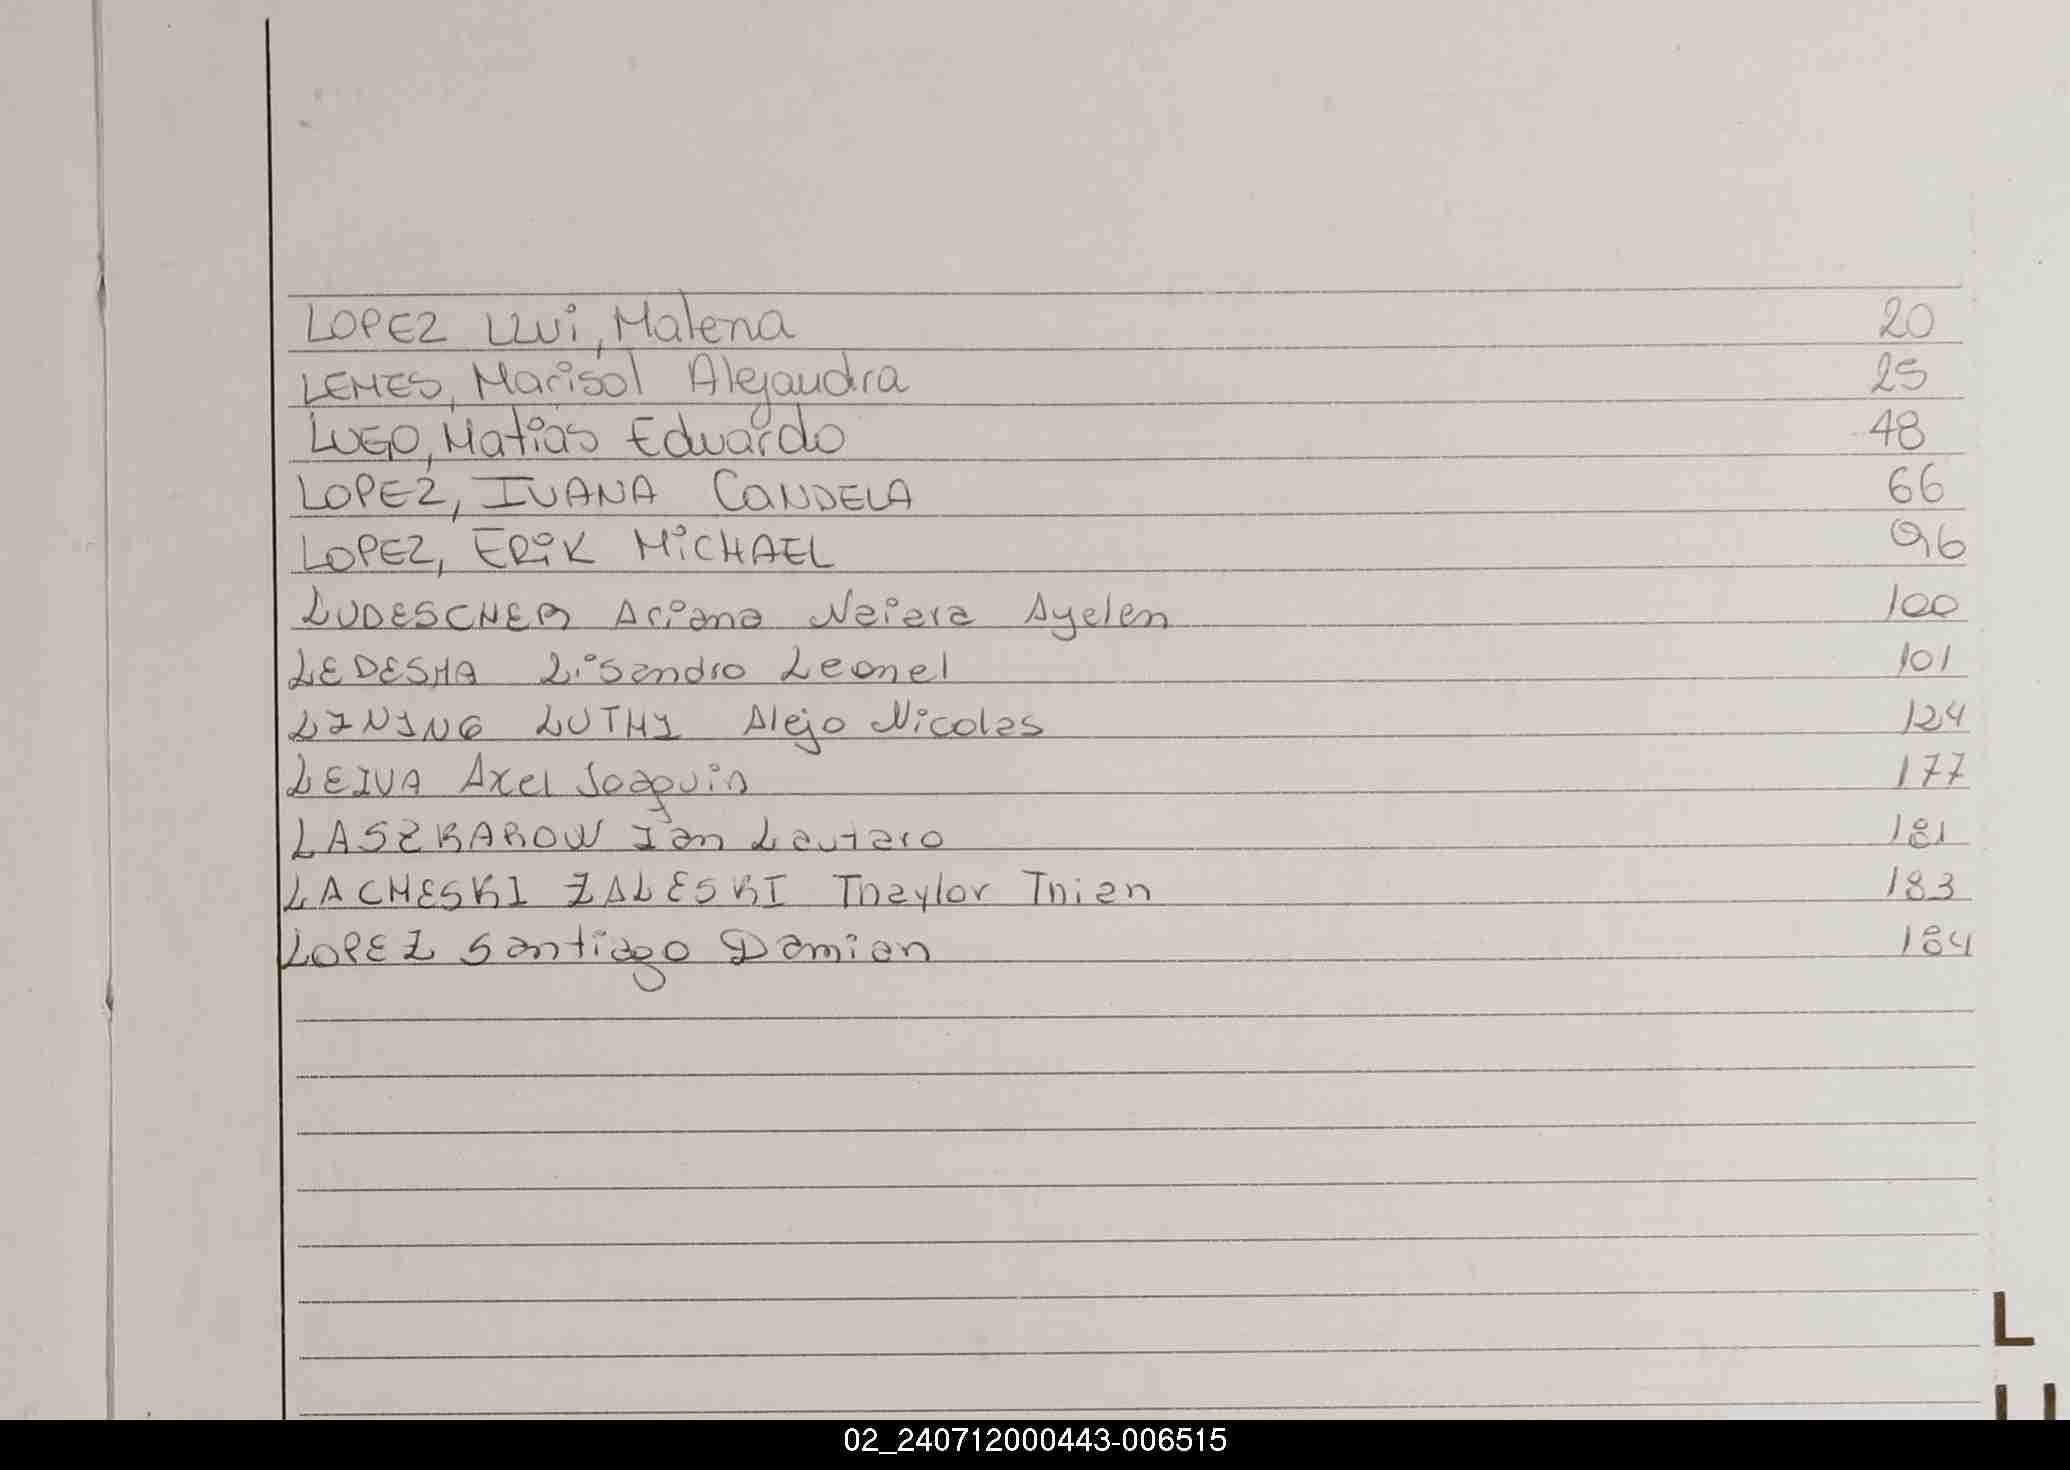 LOPEZ LLUi, Malena 20
LEMES, Marisol Alejandra 25
LUGO, Matias Eduardo 48
LOPEZ, IVANA CANDELA 66
LOPEZ, ERiK MiCHAEL 96
LUDESCHER Ariana Naiara Ayelen 100
LEDESMA Lisandro Leonel 101
LINING LUTHI Alejo Nicolas 124
LEIVA Axel Joaquin 177
LASZKAROW Ian Lautaro 181
LACHESKI ZALESKI Thaylor Thian 183
LOPEZ Santiago Damian 184
L
02_240712000443-006515